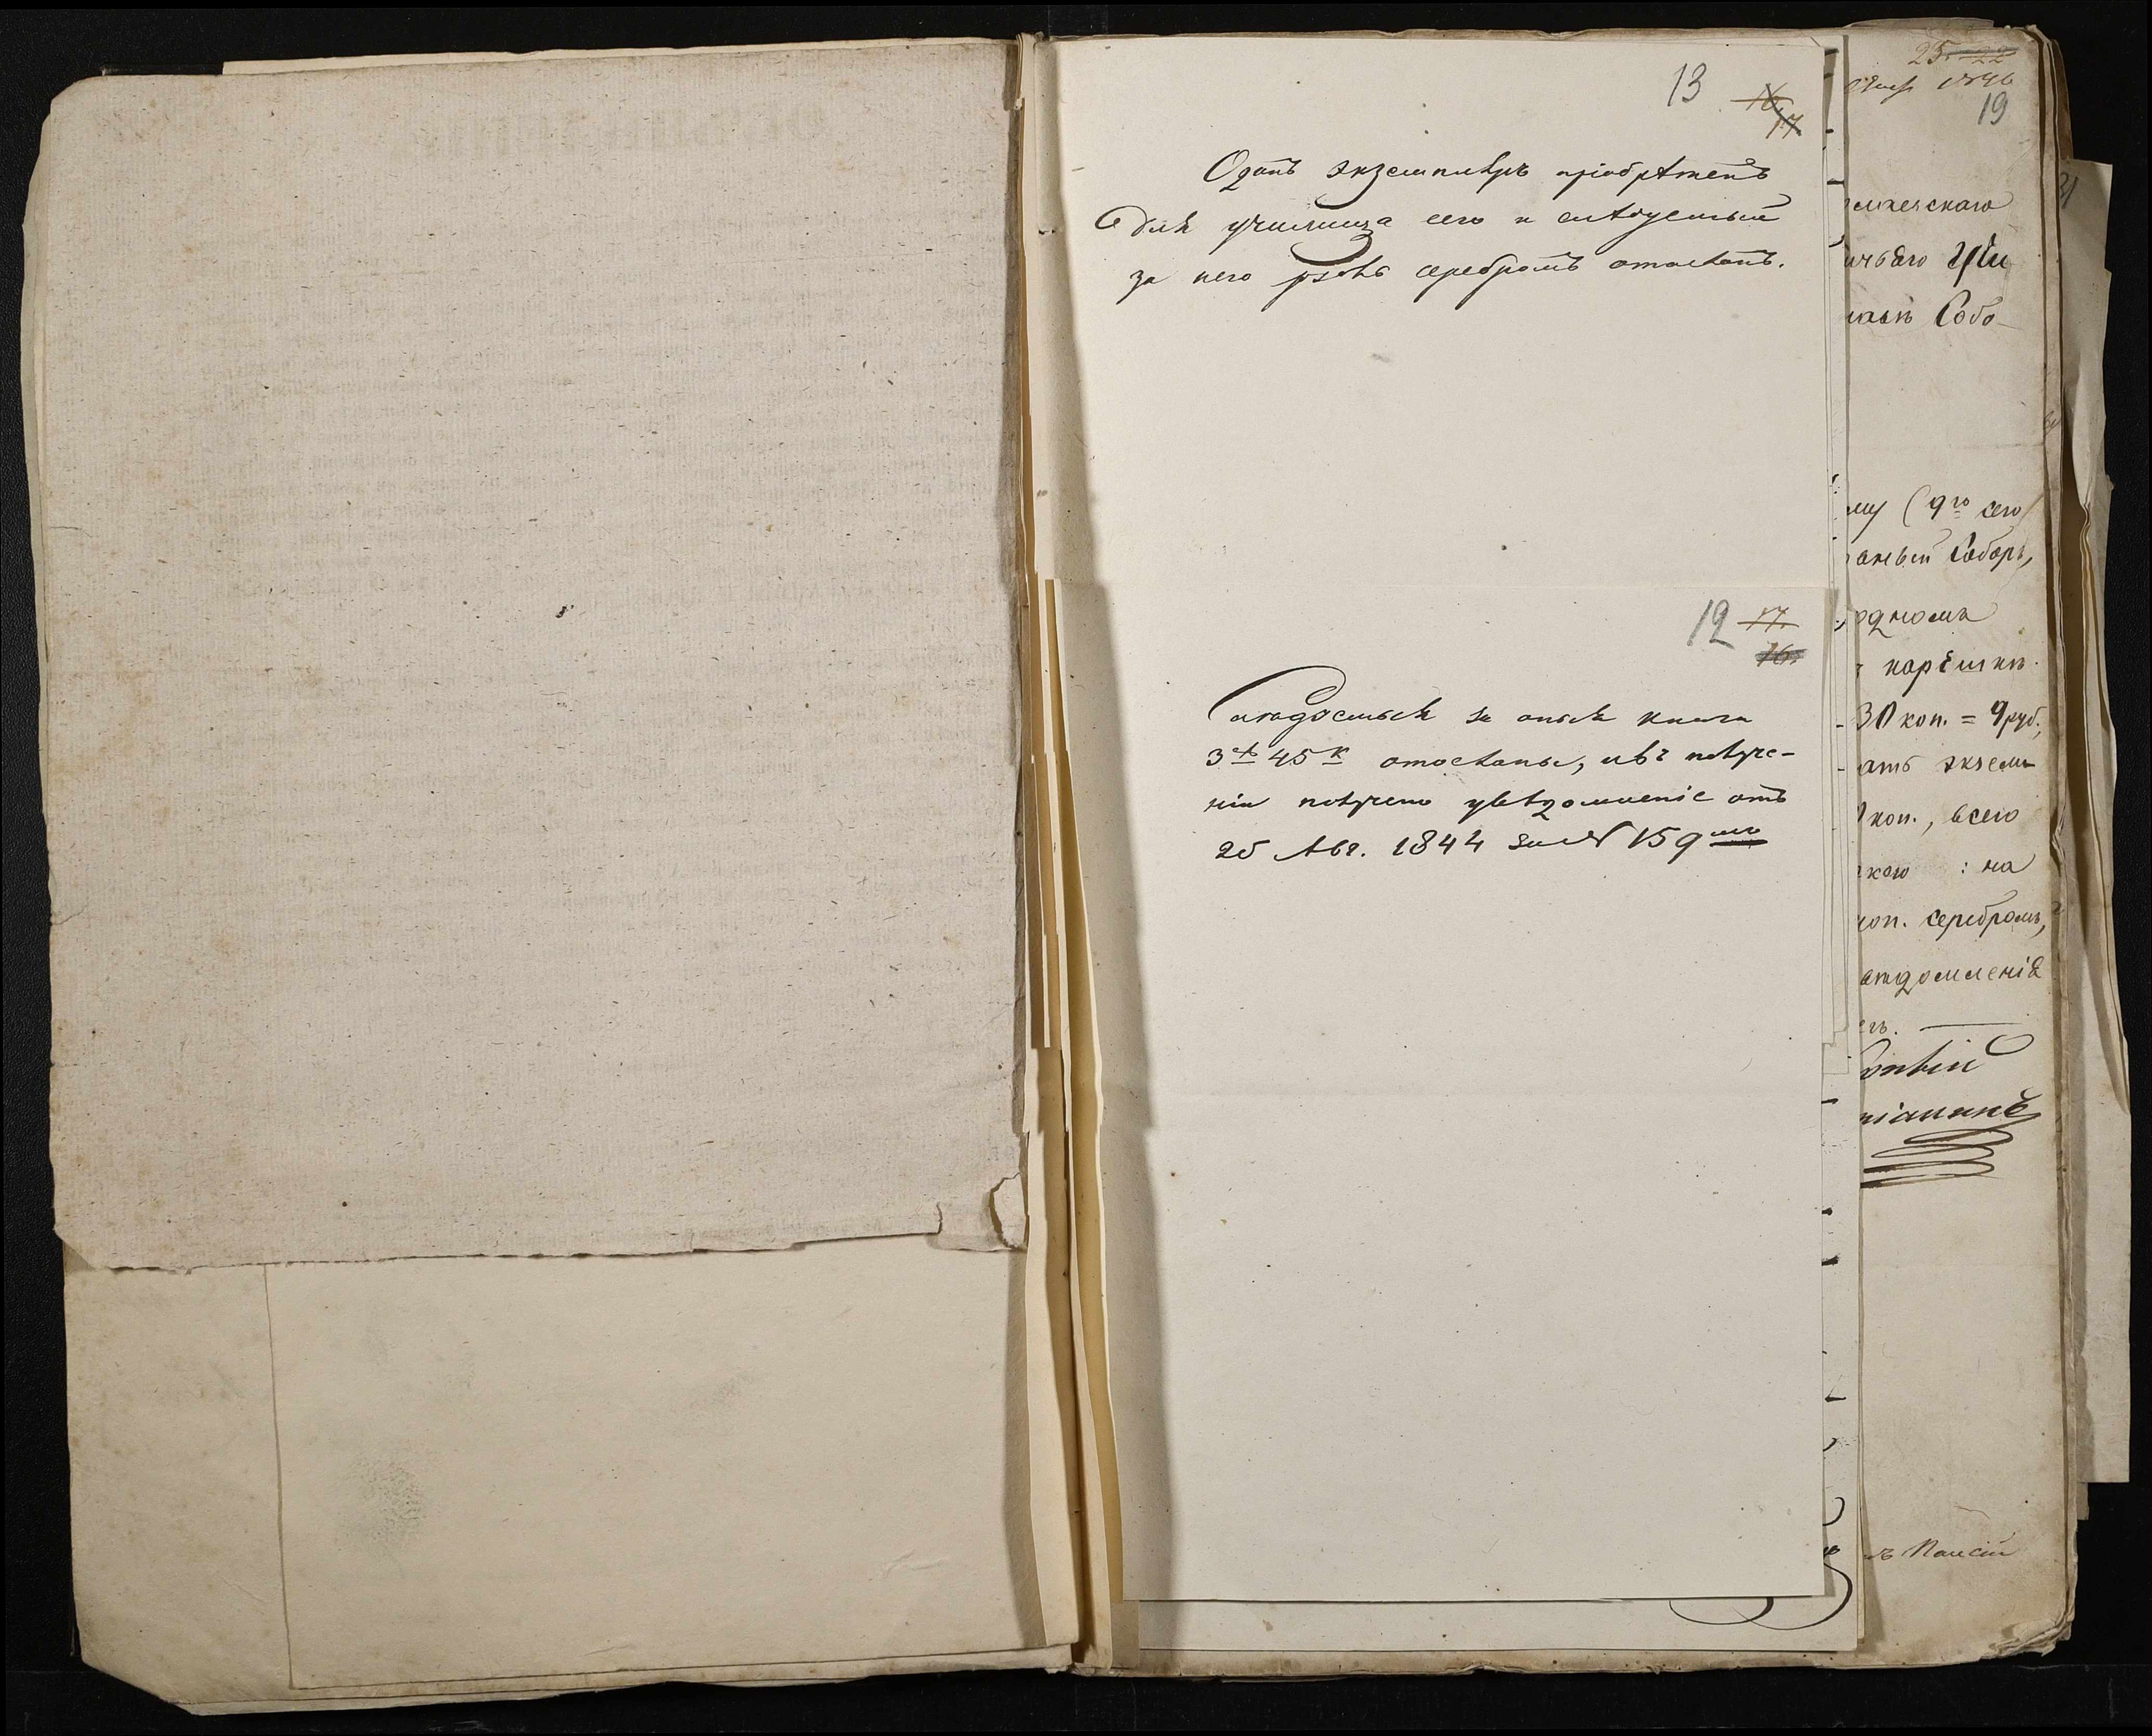 13 16
17
Одинъ экземпляръ пріобрѣтенъ
для училища сего и слѣдуемый
за него рубль серебромъ отосланъ.
12 17.
16.
Слѣдуемыя за оныя книги
3 р 45 к отосланы, и въ получе-
ніи получено увѣдомленіе отъ
25 Авг. 1844 за № 159
25 22
1846
19
скаго
Собо-
му (9го сего
Соборъ,
одномъ
30 коп. = 9 руб.,
ать экзем
коп., всего
: на
коп. серебромъ,
ѣдомленія
егъ.
ъ Паисій